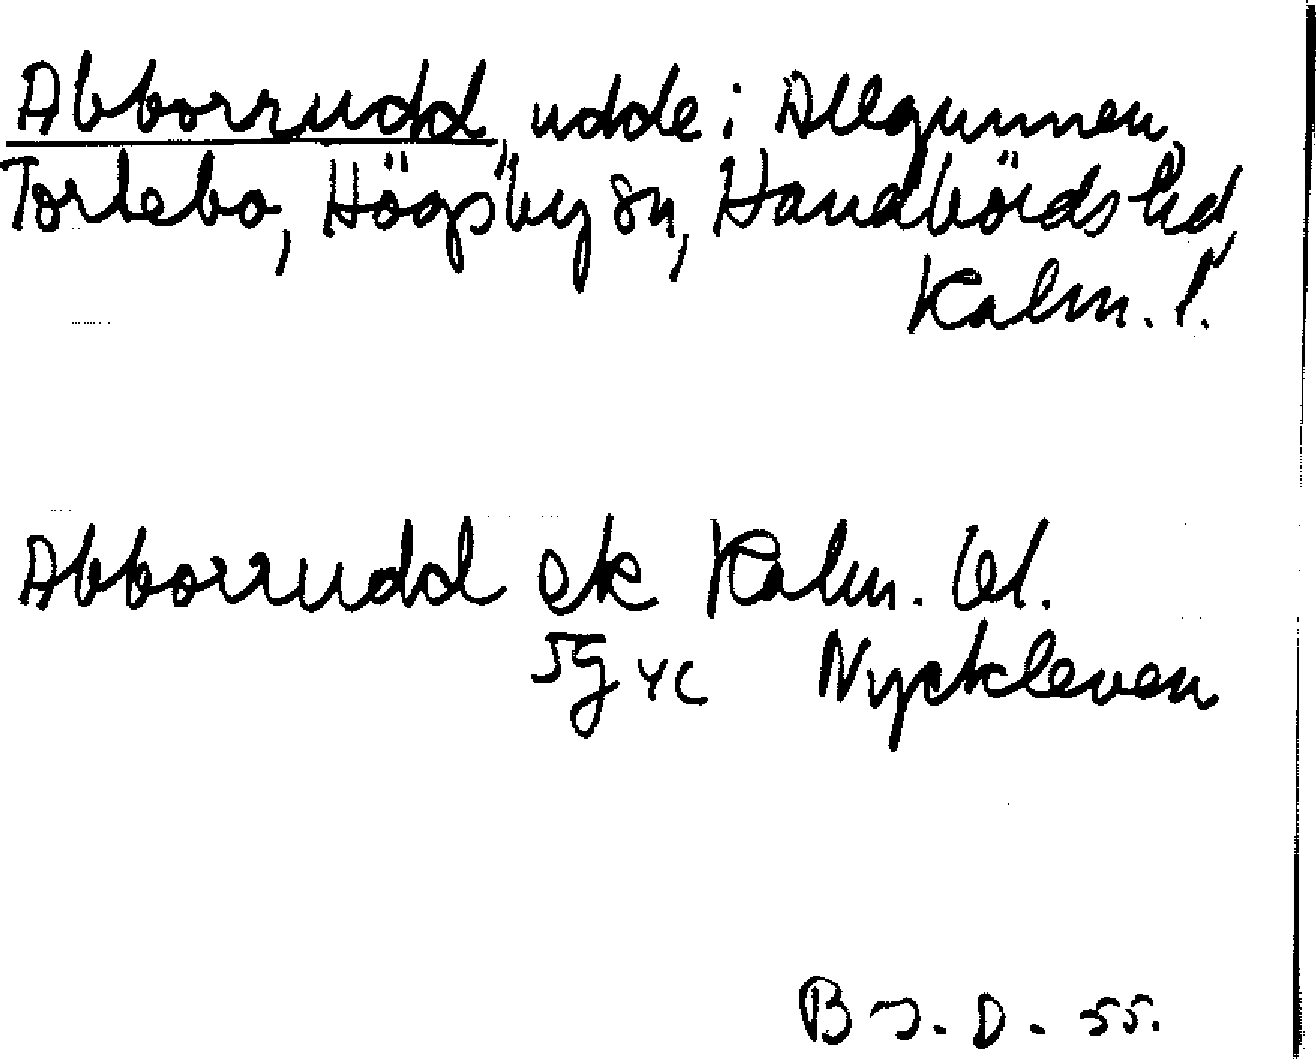 Abborrudd, udde i Allgunnen,
Torlebo, Högsby sn, Handbörds hd,
Kalm. l.
Abborrudd ek Kalm. bl.
5G yc Nyckleven
B J. D. 55.